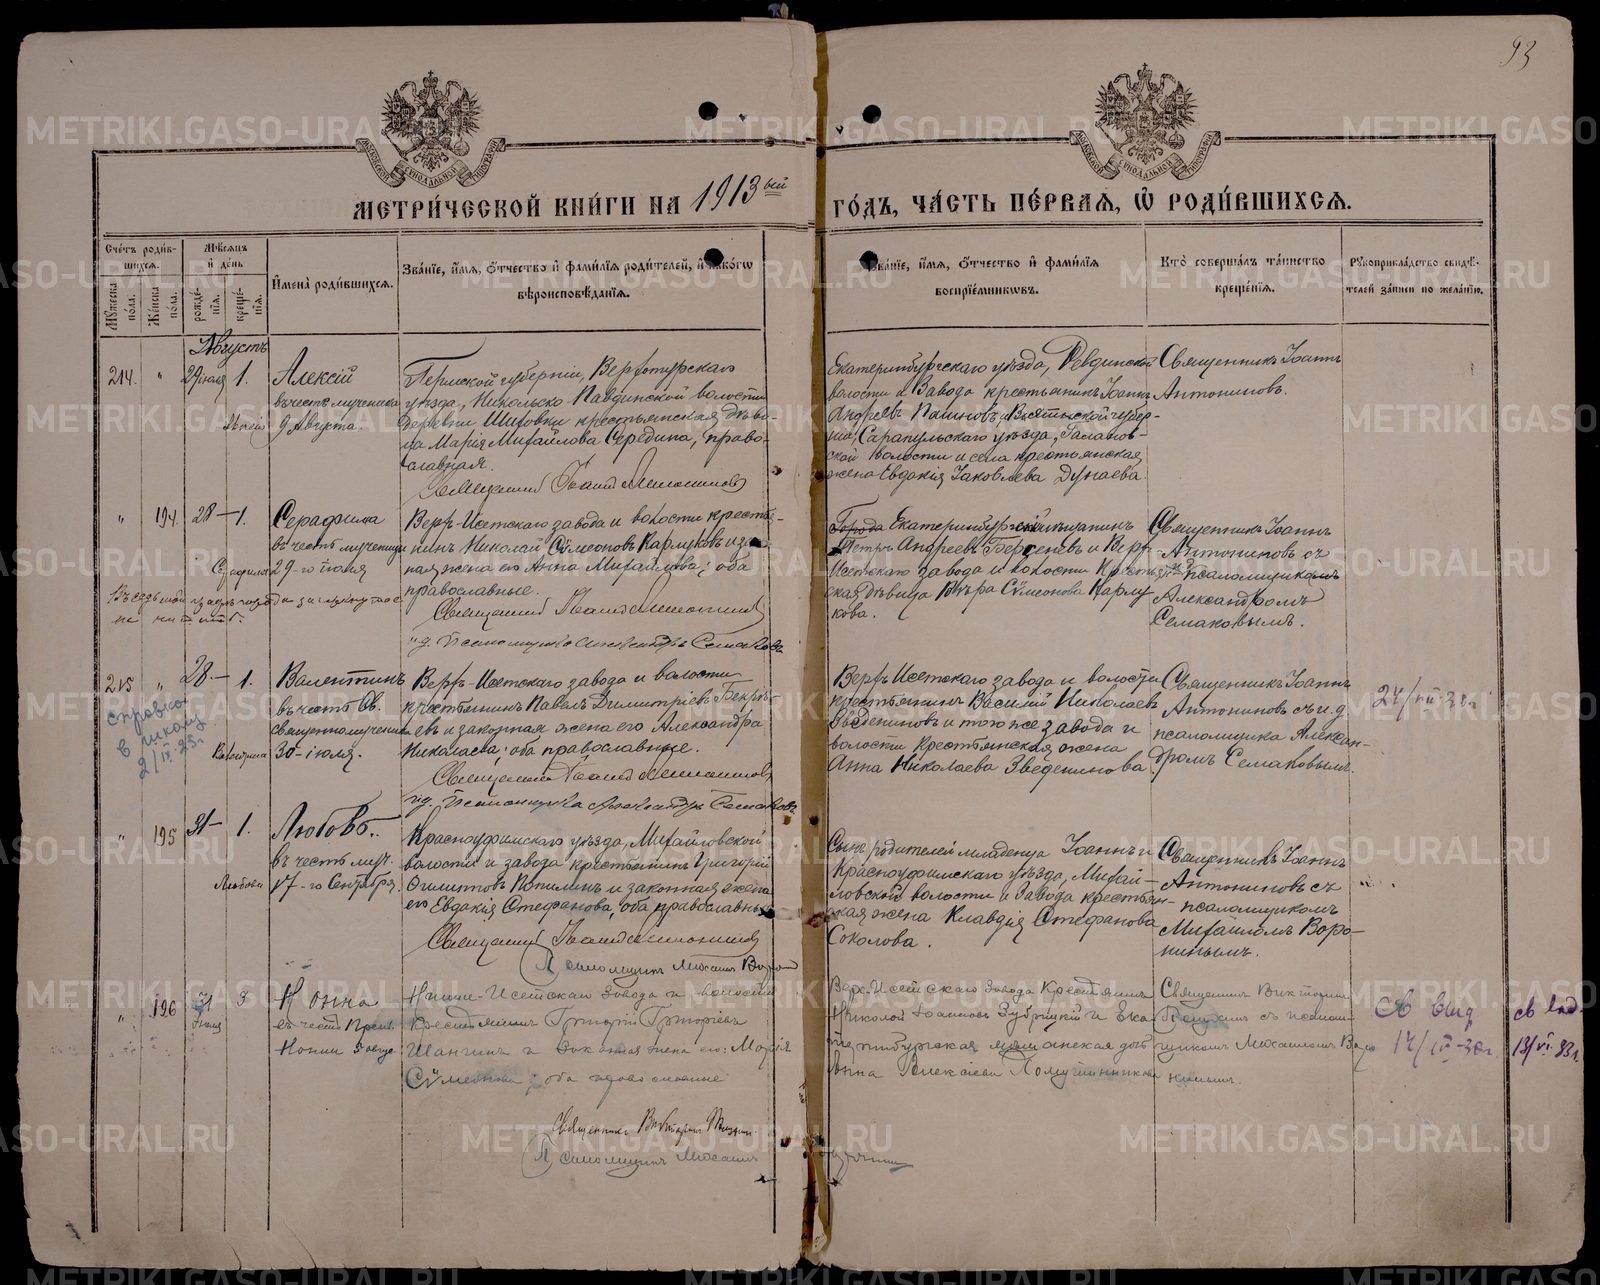 93
МОСКОВСКОЙ СѴНОДАЛЬНОЙ ТИПОГРАФІИ
МОСКОВСКОЙ СѴНОДАЛЬНОЙ ТИПОГРАФІИ
МЕТРИ́ЧЕСКОЙ КНИ́ГИ НА 1913ый ГО́ДЪ, ЧА́СТЬ ПЕ́РВАЯ, Ѡ РОДИ́ВШИХСЯ.
Сче́тъ роди́вшихся.
Мꙋ́жеска по́ла.
Же́нска по́ла.
Мѣ́сяцъ и҆ де́нь
рожде́нїя.
креще́нїя.
И҆мена̀ роди́вшихся.
Зва́нїе, и҆́мя, ѻ҆́тчество и҆ фами́лїя роди́телей, и҆ како́гѡ
вѣроисповѣ́данїя.
Зва́нїе, и҆́мя, ѻ҆́тчество и҆ фами́лїя
воспрїе́мникѡвъ.
Кто̀ соверша́лъ та́инство
креще́нїя.
Рꙋкоприкла́дство свидѣ́-
телей за́писи по жела́нїю.
Августъ
214. " 29 іюля 1.
Алексій
въ честь мученика
9 Августа.
Пермской губерніи, Верхотурскаго
уѣзда, Николаско Павдинской волости
деревни Шитовки крестьянская дѣви-
ца Марія Михайлова Середина, право-
славная.
Священникъ Іоаннъ Антониновъ
Екатеринбургскаго уѣзда, Ревдинской
волости и завода крестьянинъ Іоаннъ
Андреевъ Пашновъ и Вятской губер-
ніи, Сарапульскаго уѣзда, Галанов-
ской волости и села крестьянская
жена Евдокія Іаковлева Дунаева.
Священникъ Іоаннъ
Антониновъ.
" 194. 28 — 1.
Серафима
въ честь мученицы
29-го іюля
Верх-Исетскаго завода и волости крестья-
нинъ Николай Сѵмеоновъ Кармуковъ и закон-
ная жена его Анна Михайлова; оба
православные.
Священникъ Іоаннъ Антониновъ
и.д. Псаломщика Александръ Семаковъ
Екатеринбургскій мѣщанинъ
Петръ Андреевъ Берсеневъ и Верх-
Исетскаго завода и волости крестьян-
ская дѣвица Вѣра Сѵмеонова Карму-
кова.
Священникъ Іоаннъ
Антониновъ съ
и.д. псаломщикомъ
Александромъ
Семаковымъ.
215 " 28 — 1.
Справка
в школу
2/IV 23г
Валентинъ
въ честь Св.
священномученика
30-іюля.
Верх-Исетскаго завода и волости
крестьянинъ Павелъ Димитріевъ Бекрѣ-
евъ и законная жена его Александра
Николаева; оба православные.
Священникъ Іоаннъ Антониновъ
и.д. Псаломщика Александръ Семаковъ
Верх-Исетскаго завода и волости
крестьянинъ Василій Николаевъ
Звѣденинов и того же завода и
волости крестьянская жена
Анна Николаева Зведенинова.
Священникъ Іоаннъ
Антониновъ съ и.д.
псаломщика Алексан-
дромъ Семаковымъ.
" 195 31 — 1.
Любовь.
въ честь муч.
17-го Сентября.
Красноуфимскаго уѣзда, Михайловской
волости и завода крестьянинъ Григорій
Филипповъ Копылинъ и законная жена
его Евдокія Стефанова, оба православные
Священникъ Іоаннъ Антониновъ
Псаломщикъ Михаилъ
Сынъ родителей младенца Іоаннъ и
Красноуфимскаго уѣзда, Михай-
ловской волости и завода крестьян-
ская жена Клавдія Стефанова
Соколова.
Священникъ Іоаннъ
Антониновъ съ
псаломщикомъ
Михаиломъ Воро-
нинымъ.
" 196 31 Іюля 3
Нонна
въ честь Препод.
Нонны 5 авгус
Нижне-Исетскаго завода и волости
Крестьянинъ Григорій Григорьевъ
Шангинъ и законная жена его: Марія
Сѵмеонова; оба православные
Священникъ Викторинъ
Псаломщикъ Михаилъ
Верх-Исетскаго завода Крестьянинъ
Николай Іоанновъ Зубрицкій и Ека-
теринбургская мѣщанская дочь
Анна Алексѣева
Священникъ Викторинъ
съ псалом-
щикомъ Михаиломъ Воро-
нинымъ.
Св выд
17/IV-30г.